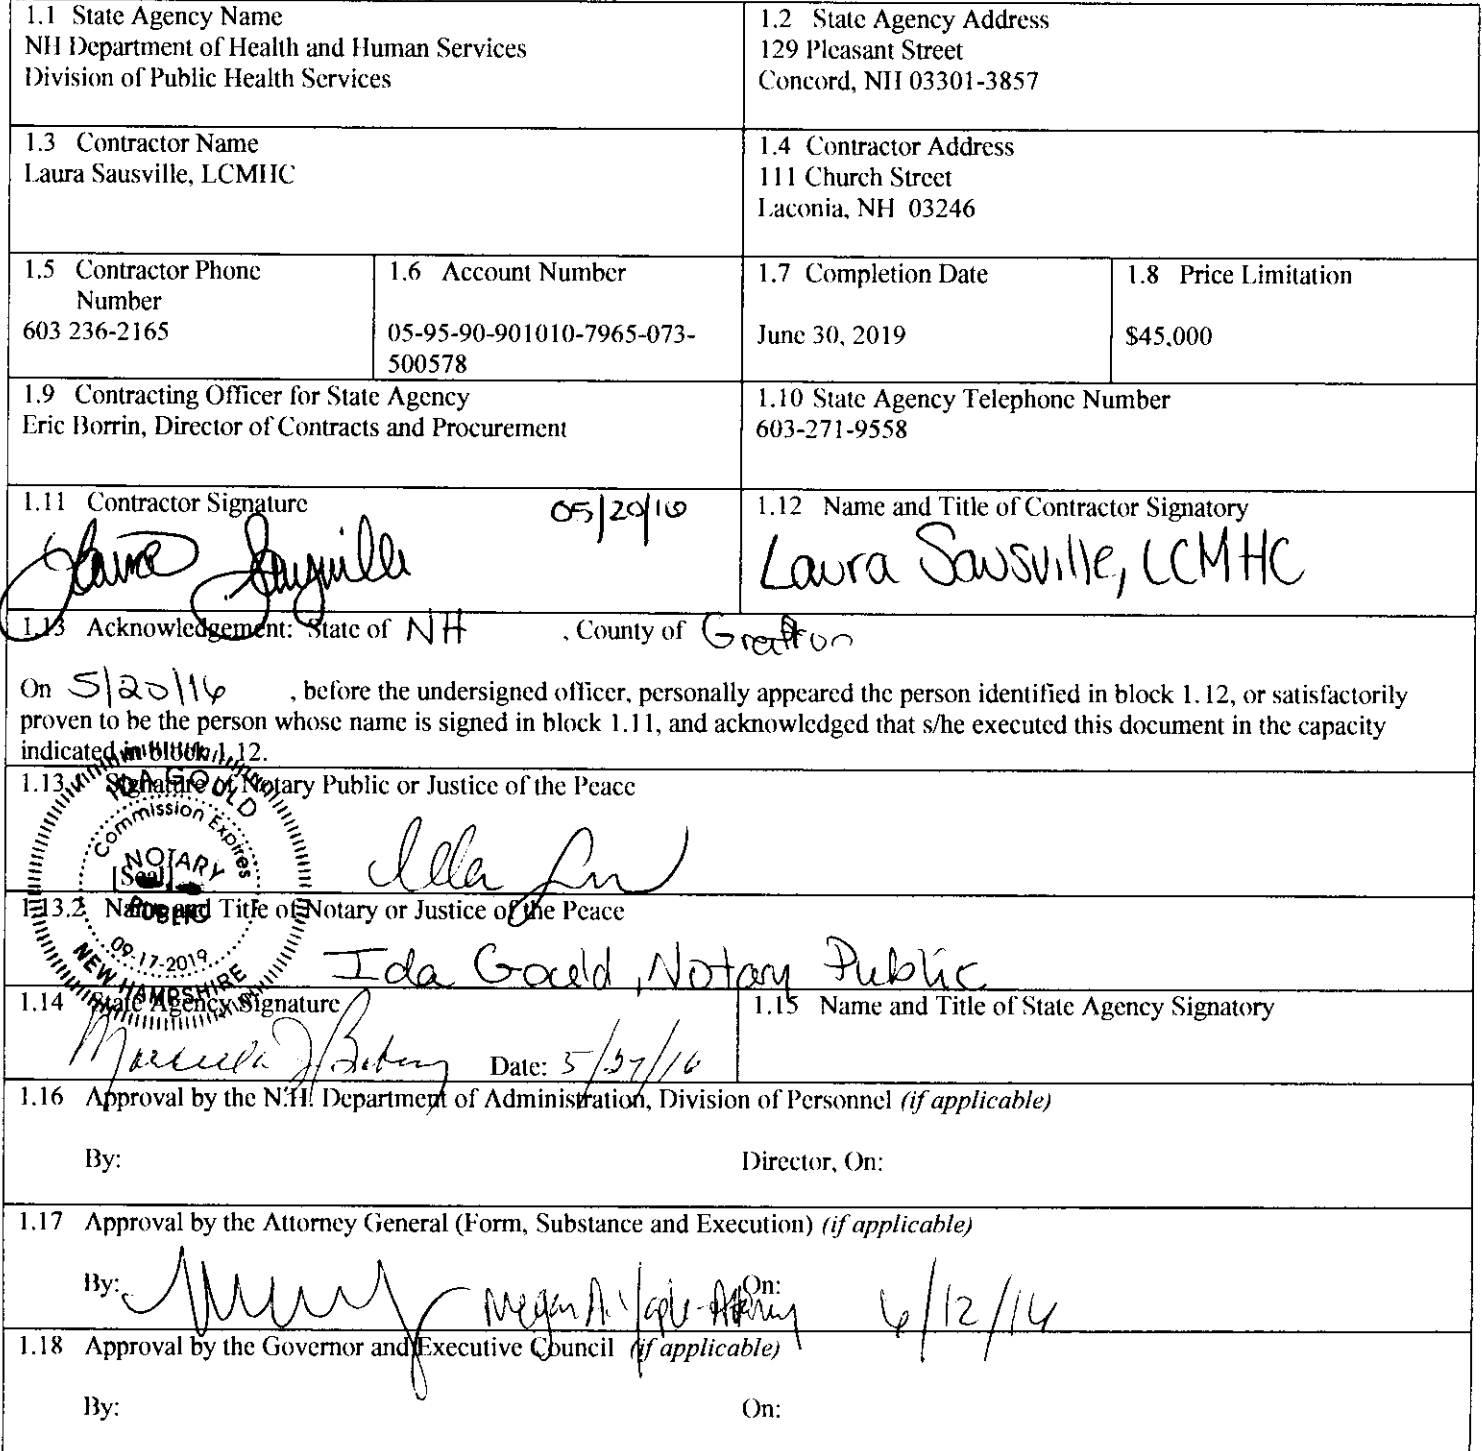 1.1 State Agency Name
NH Department of Health and Human Services
Division of Public Health Services
1.2 State Agency Address
129 Pleasant Street
Concord, NH 03301-3857
1.3 Contractor Name
Laura Sausville, LCMHC
1.4 Contractor Address
111 Church Street
Laconia, NH 03246
1.5 Contractor Phone
Number
603 236-2165
1.6 Account Number
05-95-90-901010-7965-073-
500578
1.7 Completion Date
June 30, 2019
1.8 Price Limitation
$45,000
1.9 Contracting Officer for State Agency
Eric Borrin, Director of Contracts and Procurement
1.10 State Agency Telephone Number
603-271-9558
1.11 Contractor Signature 05/20/16
Laura Sausville
1.12 Name and Title of Contractor Signatory
Laura Sausville, LCMHC
1.13 Acknowledgement: State of NH , County of Grafton
On 5/20/16 , before the undersigned officer, personally appeared the person identified in block 1.12, or satisfactorily
proven to be the person whose name is signed in block 1.11, and acknowledged that s/he executed this document in the capacity
indicated in block 1.12.
1.13. Signature of Notary Public or Justice of the Peace
IDA GOULD
Commission Expires
NOTARY
[Seal]
PUBLIC
09-17-2019
NEW HAMPSHIRE
1.13.2 Name and Title of Notary or Justice of the Peace
Ida Gould, Notary Public
1.14 State Agency Signature
Date: 5/27/16
1.15 Name and Title of State Agency Signatory
1.16 Approval by the N.H. Department of Administration, Division of Personnel (if applicable)
By: Director, On:
1.17 Approval by the Attorney General (Form, Substance and Execution) (if applicable)
By: Megan A. On: 6/12/16
1.18 Approval by the Governor and Executive Council (if applicable)
By: On: